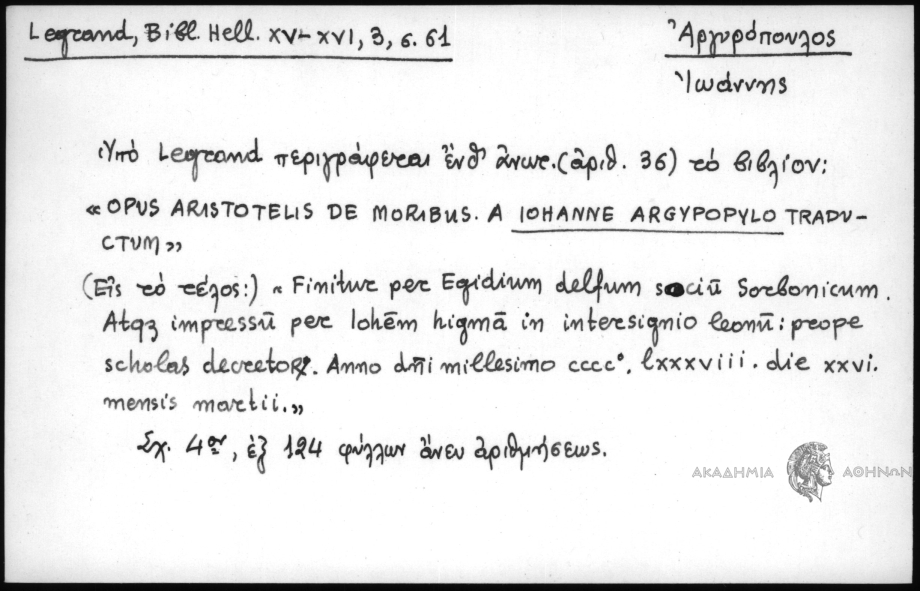 Legrand, Bibl. Hell. XV-XVI, 3, σ. 61
Ἀργυρόπουλος
Ἰωάννης
Ὑπό Legrand περιγράφεται ἔνθ' ἀνωτ. (ἀριθ. 36) τό βιβλίον:
« OPUS ARISTOTELIS DE MORIBUS. A IOHANNE ARGYPOPYLO TRADV-
CTUM »
(Εἰς τό τέλος:) « Finitur per Egidium delfum sociū Sorbonicum.
Atqꝫ impressū per Iohēm higmā in intersignio leonū: prope
scholas decretoꝝ. Anno dñi millesimo cccc°. lxxxviii. die xxvi.
mensis martii. »
Σχ. 4ον, ἐξ 124 φύλλων ἄνευ ἀριθμήσεως.
ΑΚΑΔΗΜΙΑ ΑΘΗΝΩΝ